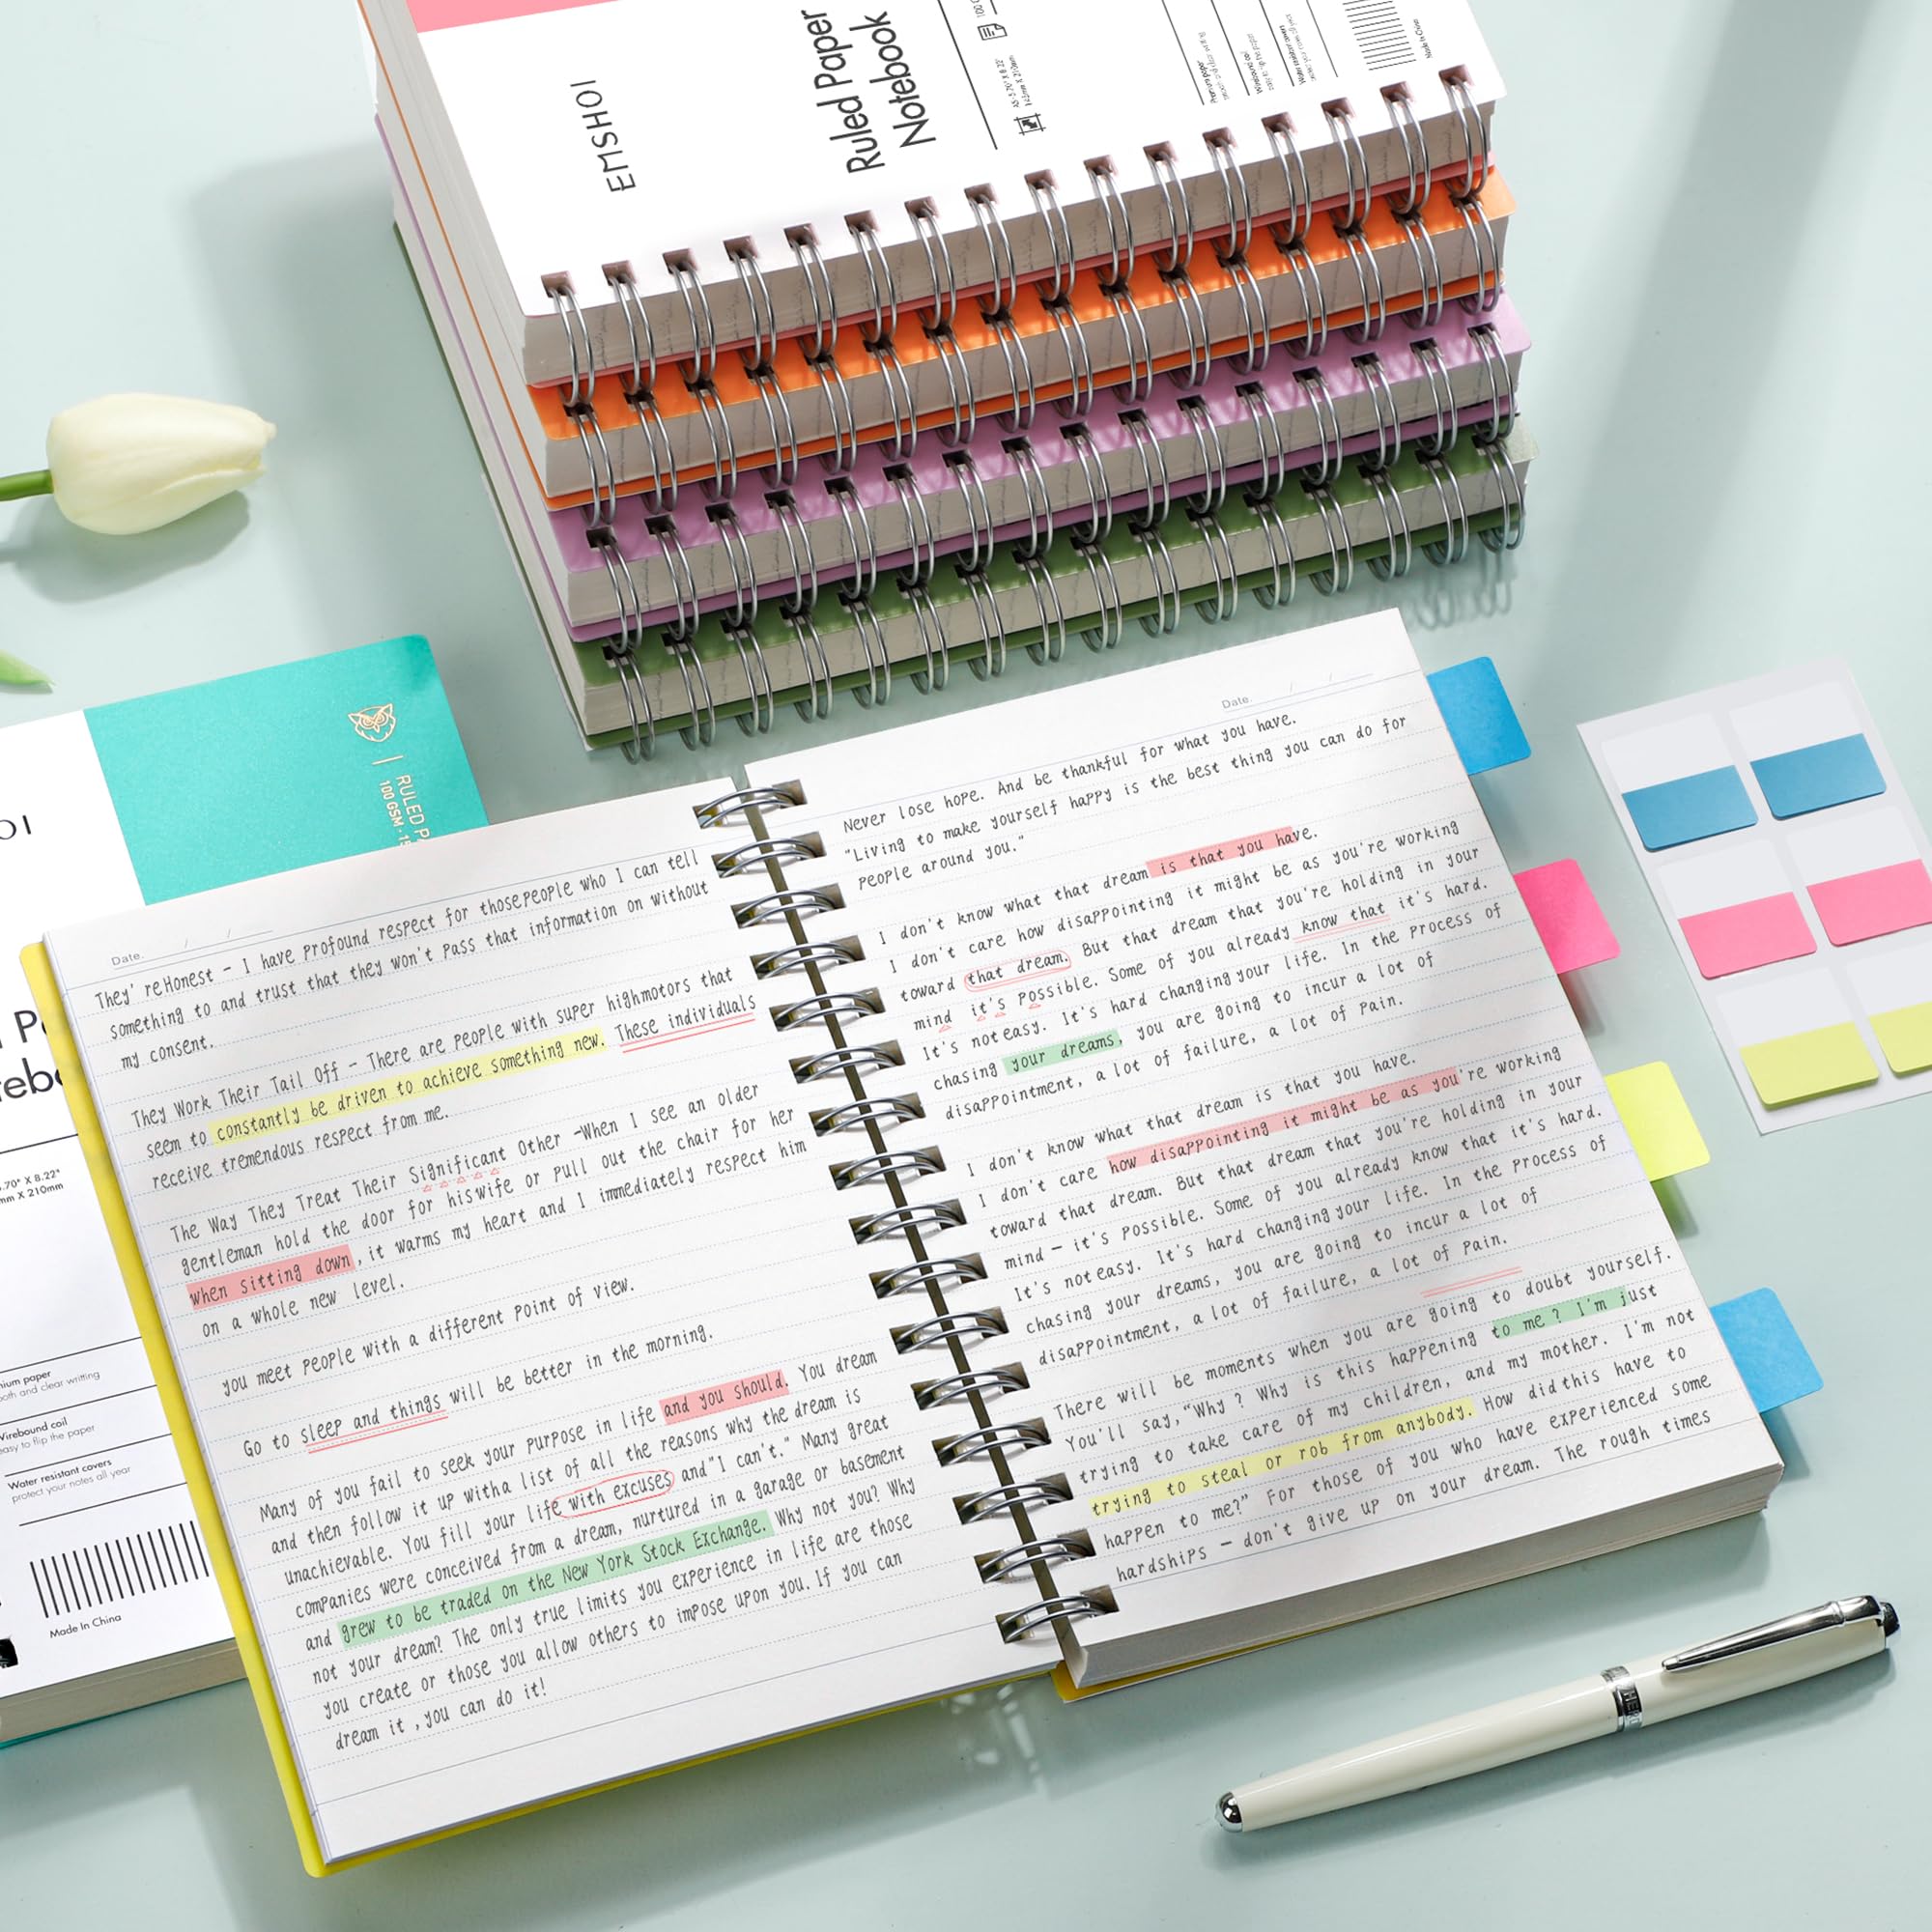 EMSHOI
Ruled Paper
Notebook
A5-5.70" X 8.22"
145mm X 210mm
Made In China
RULED P
100 GSM · 15
OI
.70" X 8.22"
mm X 210mm
nium paper
ooth and clear writting
Wirebound coil
easy to flip the paper
Water resistant covers
protect your notes all year
Made In China
Date. / /
They' reHonest - I have profound respect for thosepeople who I can tell
something to and trust that they won't pass that information on without
my consent.
They Work Their Tail Off - There are people with super highmotors that
seem to constantly be driven to achieve something new. These individuals
receive tremendous respect from me.
The Way They Treat Their Significant Other -When I see an older
gentleman hold the door for hiswife or pull out the chair for her
when sitting down, it warms my heart and I immediately respect him
on a whole new level.
you meet people with a different point of view.
Go to sleep and things will be better in the morning.
Many of you fail to seek your purpose in life and you should. You dream
and then follow it up witha list of all the reasons why the dream is
unachievable. You fill your life with excuses and"I can't." Many great
companies were conceived from a dream, nurtured in a garage or basement
and grew to be traded on the New York Stock Exchange. Why not you? Why
not your dream? The only true limits you experience in life are those
you create or those you allow others to impose upon you. If you can
dream it , you can do it!
Date. / /
Never lose hope. And be thankful for what you have.
"Living to make yourself happy is the best thing you can do for
people around you."
I don't know what that dream is that you have.
I don't care how disappointing it might be as you're working
toward that dream. But that dream that you're holding in your
mind it's possible. Some of you already know that it's hard.
It's not easy. It's hard changing your life. In the process of
chasing your dreams, you are going to incur a lot of
disappointment, a lot of failure, a lot of pain.
I don't know what that dream is that you have.
I don't care how disappointing it might be as you're working
toward that dream. But that dream that you're holding in your
mind - it's possible. Some of you already know that it's hard.
It's not easy. It's hard changing your life. In the process of
chasing your dreams, you are going to incur a lot of
disappointment, a lot of failure, a lot of pain.
There will be moments when you are going to doubt yourself.
You'll say,"Why ? Why is this happening to me ? I'm just
trying to take care of my children, and my mother. I'm not
trying to steal or rob from anybody. How did this have to
happen to me?" For those of you who have experienced some
hardships - don't give up on your dream. The rough times